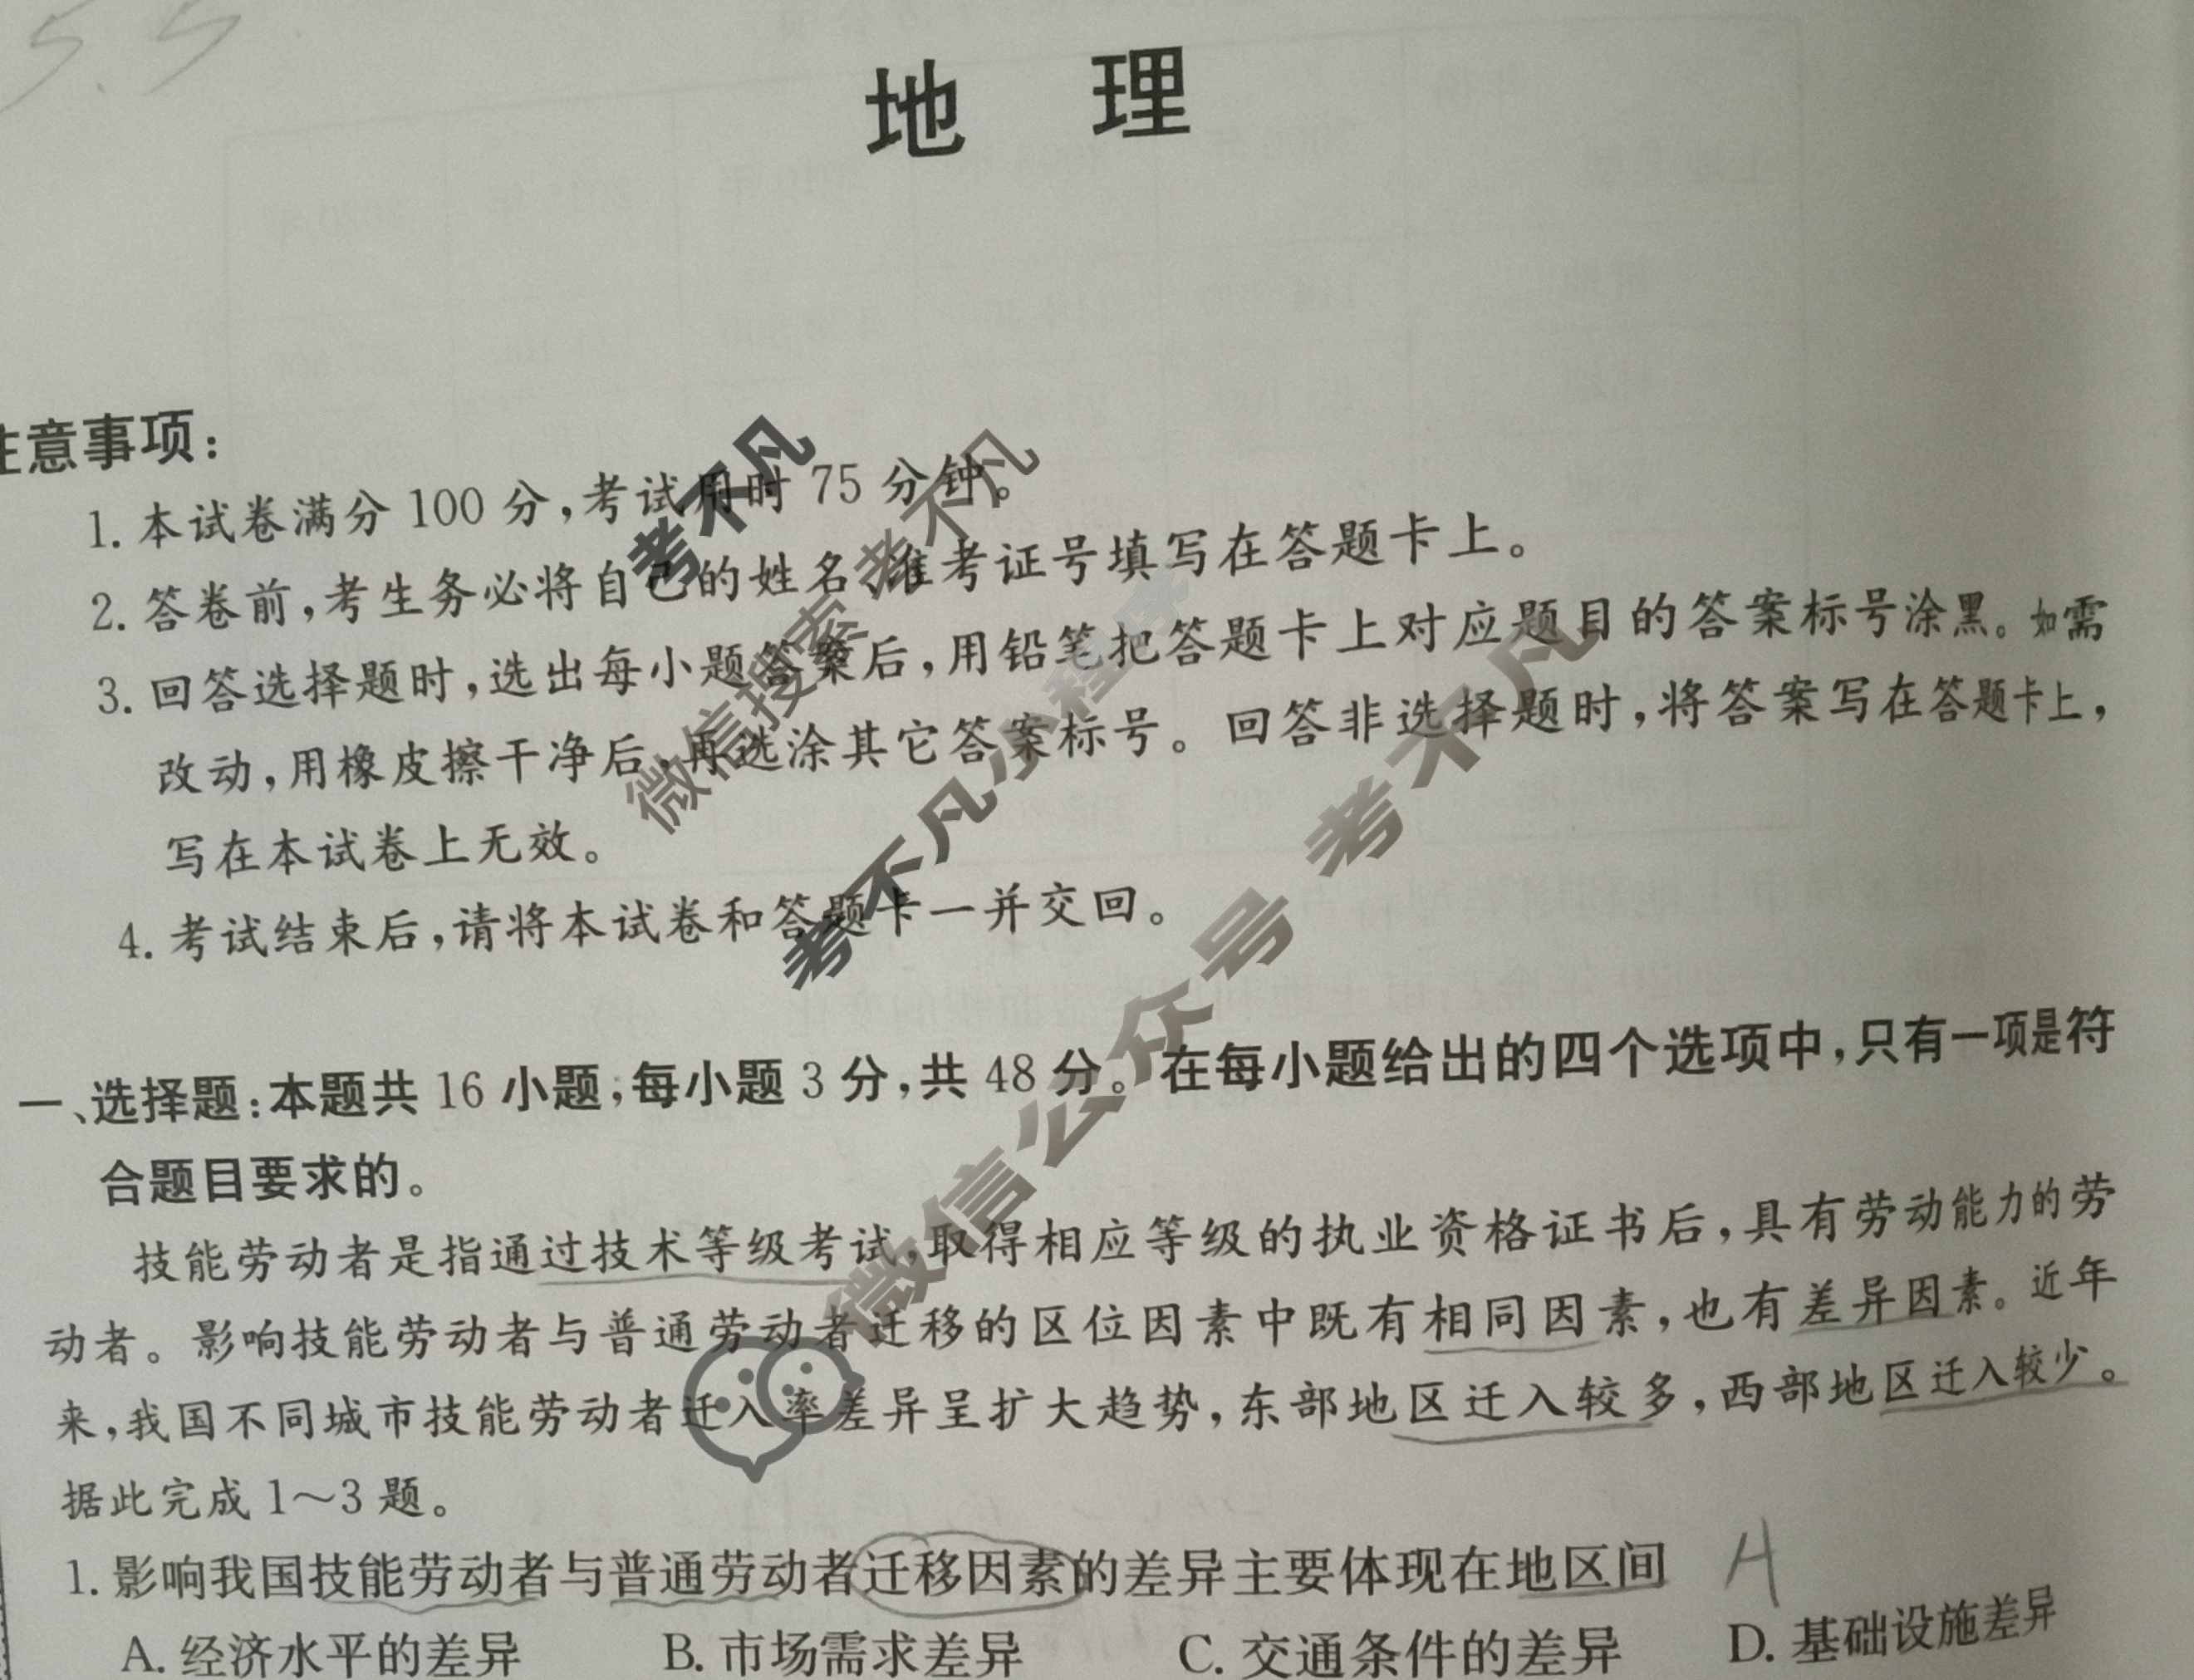 5.5
地 理
注意事项:
1. 本试卷满分 100 分,考试用时 75 分钟。
2. 答卷前,考生务必将自己的姓名、准考证号填写在答题卡上。
3. 回答选择题时,选出每小题答案后,用铅笔把答题卡上对应题目的答案标号涂黑。如需
改动,用橡皮擦干净后,再选涂其它答案标号。回答非选择题时,将答案写在答题卡上,
写在本试卷上无效。
4. 考试结束后,请将本试卷和答题卡一并交回。
考不凡
微信搜索 考不凡
考不凡小程序
微信公众号 考不凡
一、选择题:本题共 16 小题,每小题 3 分,共 48 分。在每小题给出的四个选项中,只有一项是符
合题目要求的。
技能劳动者是指通过技术等级考试,取得相应等级的执业资格证书后,具有劳动能力的劳
动者。影响技能劳动者与普通劳动者迁移的区位因素中既有相同因素,也有差异因素。近年
来,我国不同城市技能劳动者迁入率差异呈扩大趋势,东部地区迁入较多,西部地区迁入较少。
据此完成 1～3 题。
1. 影响我国技能劳动者与普通劳动者迁移因素的差异主要体现在地区间 A
A. 经济水平的差异 B. 市场需求差异 C. 交通条件的差异 D. 基础设施差异